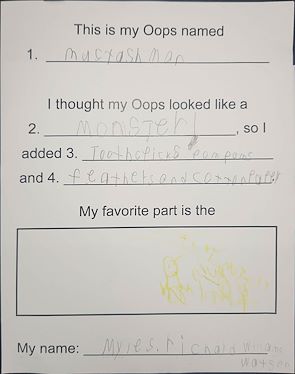 This is my Oops named
1. mustash man
I thought my Oops looked like a
2. monster, so I
added 3. Toothpicks pompoms
and 4. feathers and cottonpaper
My favorite part is the
My name: Myles. Richard Williams
Watson